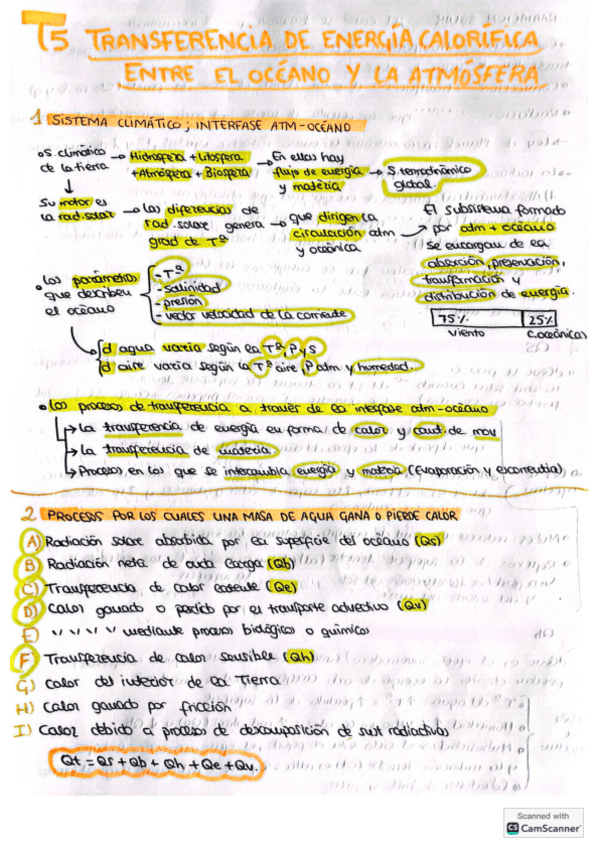 T5 TRANSFERENCIA DE ENERGÍA CALORÍFICA
ENTRE EL OCÉANO Y LA ATMÓSFERA
1 SISTEMA CLIMÁTICO; INTERFASE ATM-OCÉANO
S. climático de la tierra → Hidrosfera + Litosfera + Atmósfera + Biosfera → En ellas hay flujo de energía y materia → S. termodinámico global.
Su motor es la rad. solar → Las diferencias de rad. solar genera grad de Tª → que dirigen la circulación atm y oceánica
El subsistema formado por atm + océano se encargan de la absorción, preservación, transformación y distribución de energía.
75% 25%
viento C. oceánicas
Los parámetros que describen el océano
- Tª
- salinidad
- presión
- vector velocidad de la corriente
d agua varía según la Tª, P y S
d aire varía según la Tª aire, P atm y humedad.
Los procesos de transferencia a través de la interfase atm-océano
→ La transferencia de energía en forma de calor y cant. de mov
→ La transferencia de materia
→ Procesos en los que se intercambia energía y materia (Evaporación y escorrentía)
2 PROCESOS POR LOS CUALES UNA MASA DE AGUA GANA O PIERDE CALOR
A) Radiación solar absorbida por la superficie del océano (Qs)
B) Radiación neta de onda larga (Qb)
C) Transferencia de calor latente (Qe)
D) Calor ganado o perdido por el transporte advectivo (Qv)
E) " " " " mediante procesos biológicos o químicos
F) Transferencia de calor sensible (Qh)
G) Calor del interior de la Tierra
H) Calor ganado por fricción
I) Calor debido a procesos de descomposición de sust radiactivas
Qt = Qs + Qb + Qh + Qe + Qv.
Scanned with
CS CamScanner